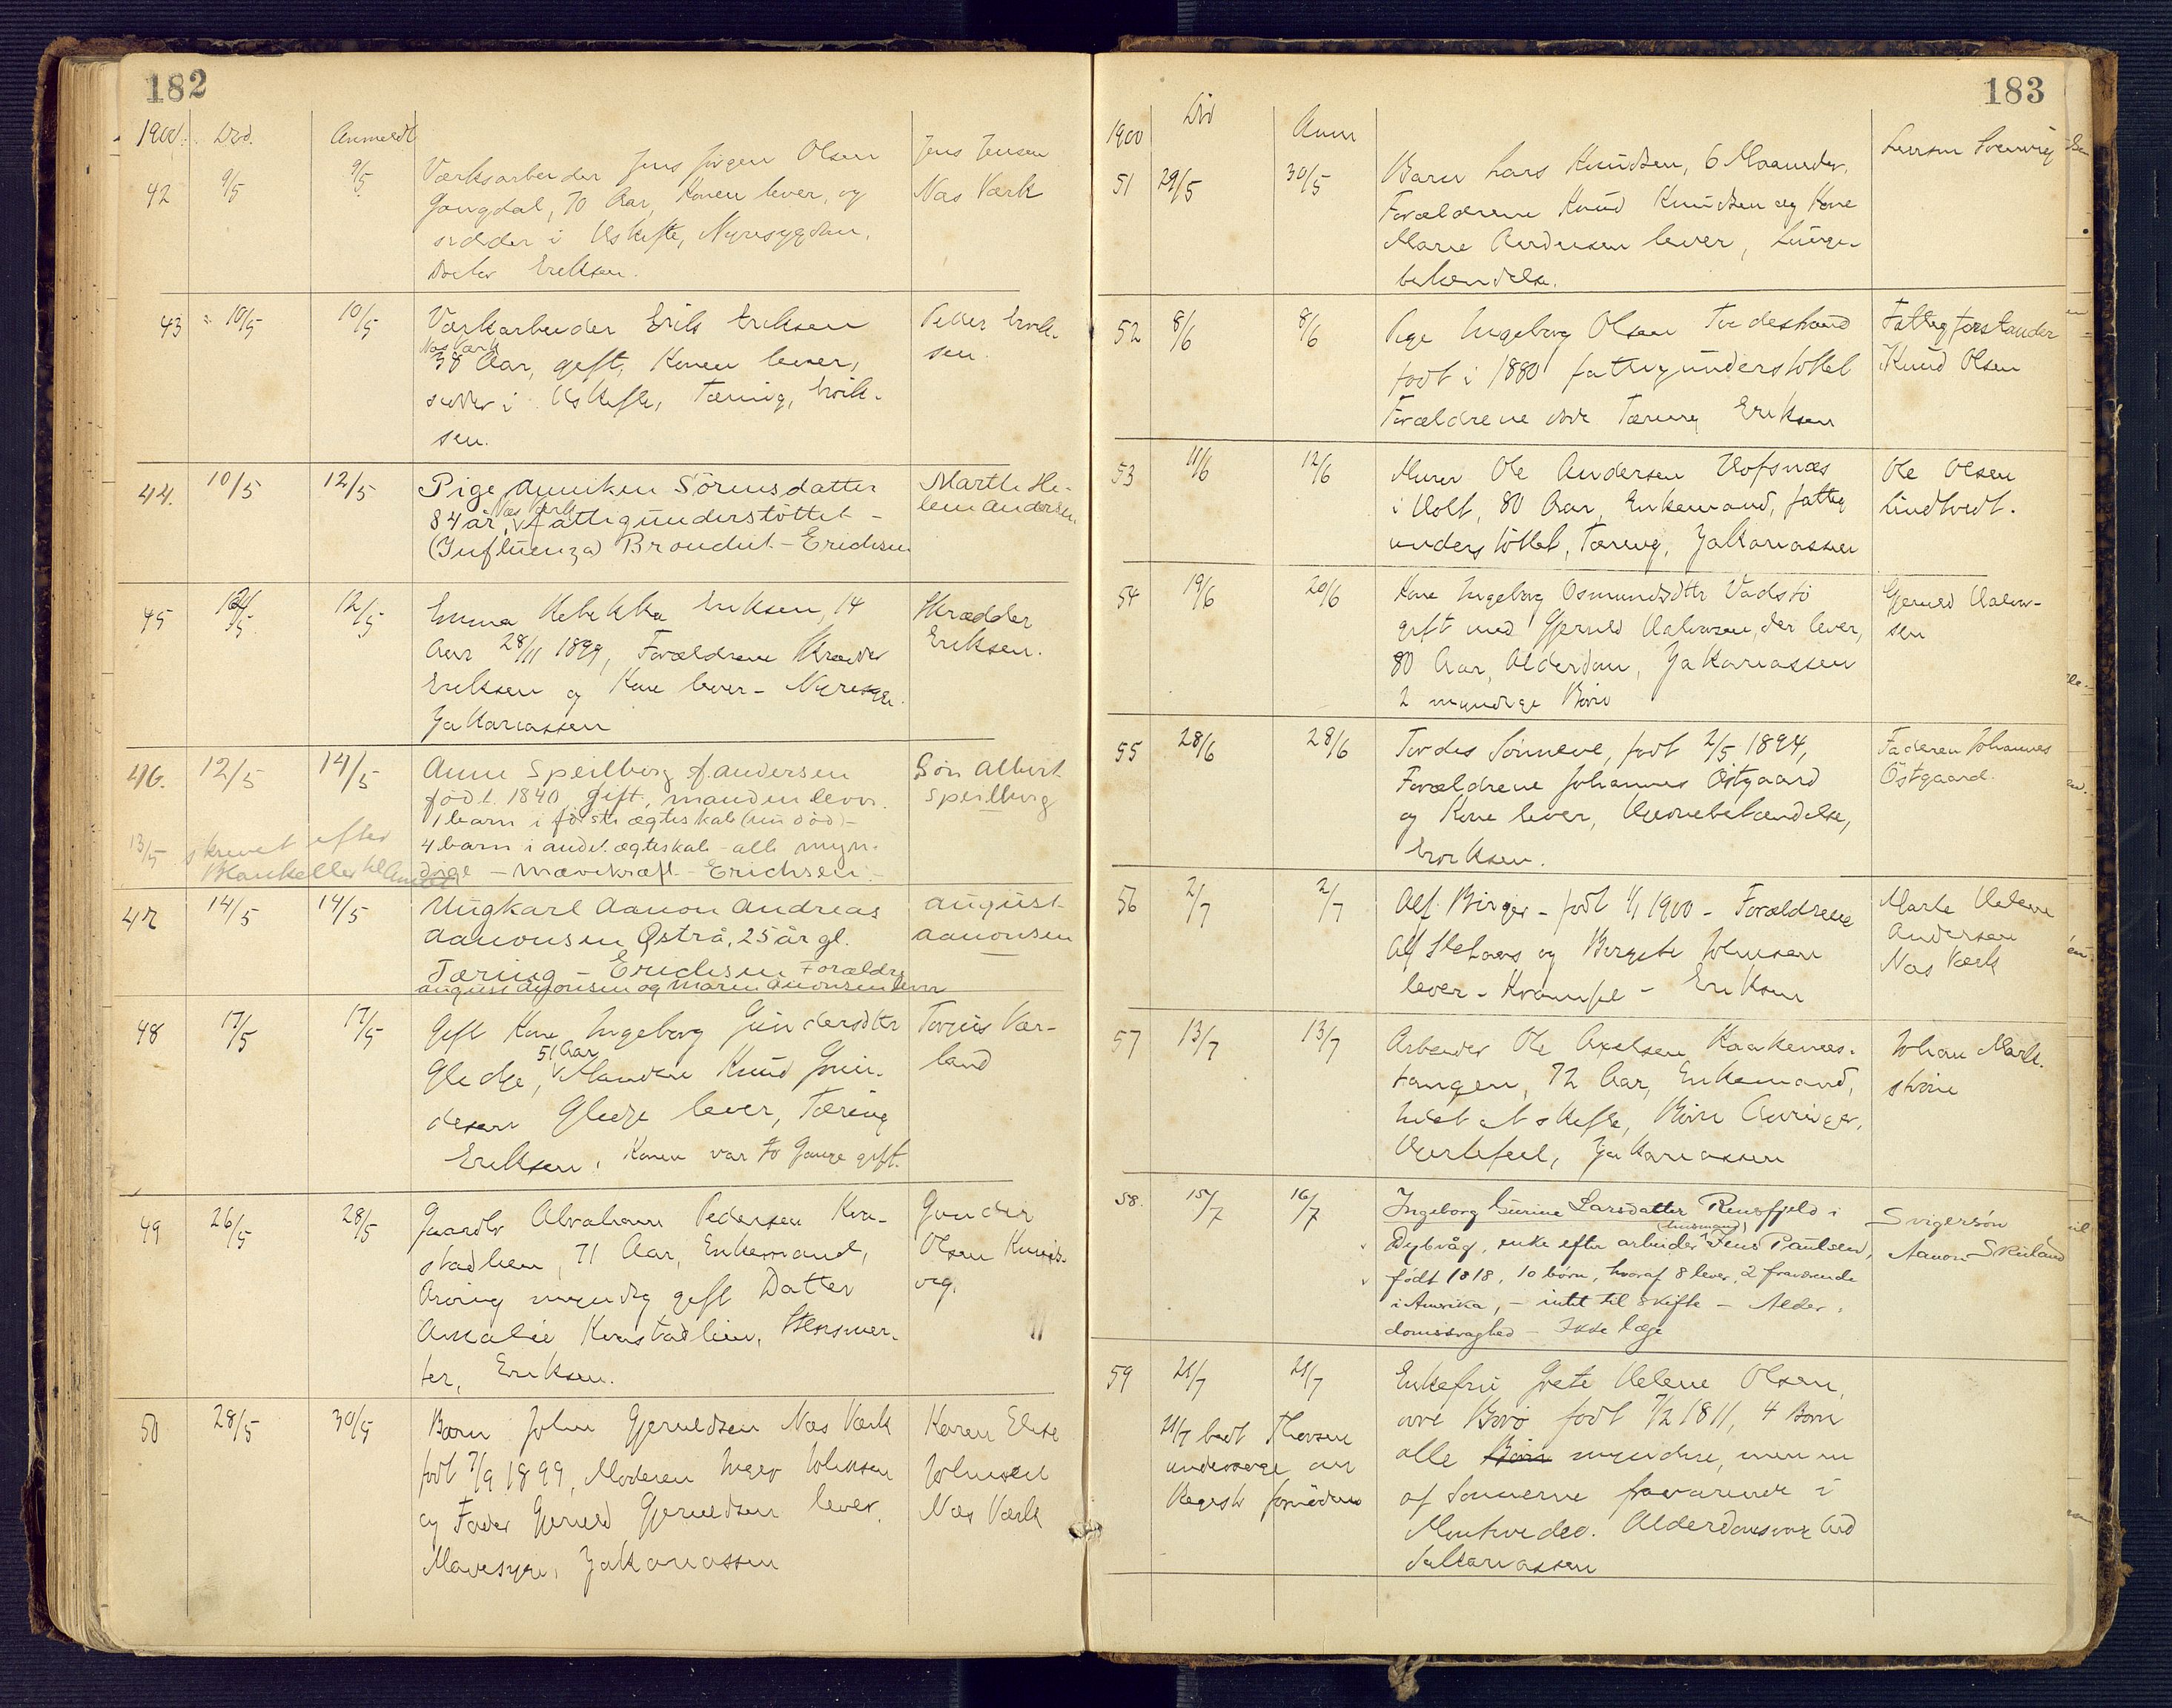 182
1900. Død. Anmeldt
42 9/5 9/5 Værksarbeider Jens Jörgen Olsen Jens Jensen
Gongdal, 70 Aar, Konen lever, og Næs Værk
sidder i Uskifte, Nyresygdom,
Doctor Eriksen.
43 10/5 10/5 Værkarbeider Erik Eriksen Peder Erik-
Næs Værk
38 Aar, gift, Konen lever, sen.
sidder i Uskifte, Tæring, Erik-
sen.
44. 10/5 12/5 Pige Anniken Sörensdatter Marthe He-
84 år, Næs Værk fattigunderstöttet - lene Andersen
(Influenza) Bronchit - Erichsen
45 12/5 12/5 Emma Rebekka Eriksen, 14 Skrædder
Aar 28/11 1899, Forældrene Skræder Eriksen.
Eriksen og Kone lever - Nyresyge.
Zakariassen
46. 12/5 14/5 Anne Speilberg f. Andersen Sön Albert
född. 1840 gift, manden lever. Speilberg
1 barn i förste ægteskab (nu död) -
4 barn i andet ægteskab - alle myn-
dige - Mavekræft - Erichsen -
13/5 skrevet efter
Blanketter til Amtet
47 14/5 14/5 Ungkarl Aanon Andreas August
Aanonsen Østrå, 25 år gl. Aanonsen
Tæring - Erichsen Forældre
August Aanonsen og Maren Aanonsen lever
48 17/5 17/5 Gift Kone Ingeborg Gundersdtr Torjus Vær-
Gledje, 51 Aar Manden Knud Gun- land
dersen Gledje lever, Tæring
Eriksen. Konen var to Gange gift.
49 26/5 28/5 Gaardbr Abraham Pedersen Kve- Gunder
stadlien, 71 Aar, Enkemand, Olsen
Arving myndig gift Datter
Amalie Kvestadlien,
Eriksen.
50 28/5 30/5 Barn John Gjeruldsen Næs Værk Karen Elise
født 7/9 1899, Moderen Inger Johnsen Johnsen
og Fader Gjeruld Gjeruldsen lever. Næs Værk
Mavesyge, Zakariassen
183
1900 Död Anm
51 29/5 30/5 Barn Lars Knudsen, 6 Maaneder.
Forældrene Knud Knudsen og Kone
Marie Andersen lever, Lunge-
betændelse.
52 8/6 8/6 Pige Ingeborg Olsen Tvedestrand Fattigforstander
født i 1880 fattigunderstöttet Knud Olsen
Forældrene döde Tæring Eriksen
53 11/6 12/6 Murer Ole Andersen Hofsnæs Ole Olsen
i Holt, 80 Aar, Enkemand, fattig Lindtvedt.
understöttet, Tæring, Zakariassen
54 19/6 20/6 Kone Ingeborg Osmundsdtr Vadstö Gjeruld Halvor-
gift med Gjeruld Halvorsen, der lever, sen
80 Aar, Alderdom, Zakariassen
2 myndige Börn
55 28/6 28/6 Tordis Sönneve, født 2/5 1894, Faderen Johannes
Forældrene Johannes Östgaard Östgaard.
og Kone lever, Hjernebetændelse,
Eriksen.
56 2/7 2/7 Alf Birger - født 1/1 1900 - Forældrene Marte Helene
Alf og Bergite Johnsen Andersen
lever - Krampe - Eriksen Næs Værk
57 13/7 13/7 Arbeider Ole Axelsen Kaakenes- Johan Mark-
tangen, 72 Aar, Enkemand,
intet at skifte, Börn Arvinger,
Hjertefeil, Zakariassen
58. 15/7 16/7 Ingeborg Gurine Larsdatter Rensfjeld i Svigersön
Dybvåg, enke efter arbeider (husmand) Jens Paulsen, Aanon Skuland
født 1818, 10 börn, hvoraf 8 lever, 2 fraværende
i Amerika, - intet til skifte - Alder-
domssvaghed - Ikke læge
59 21/7 21/7 Enkefru Grete Helene Olsen,
Borö født 7/2 1811, 4 Börn
21/7 bedt Thorsen alle Börn myndige, men en
undersøge om af Sönnerne fraværende i
Registr fornödens Montevideo. Alderdomssvaghed
Zakariassen